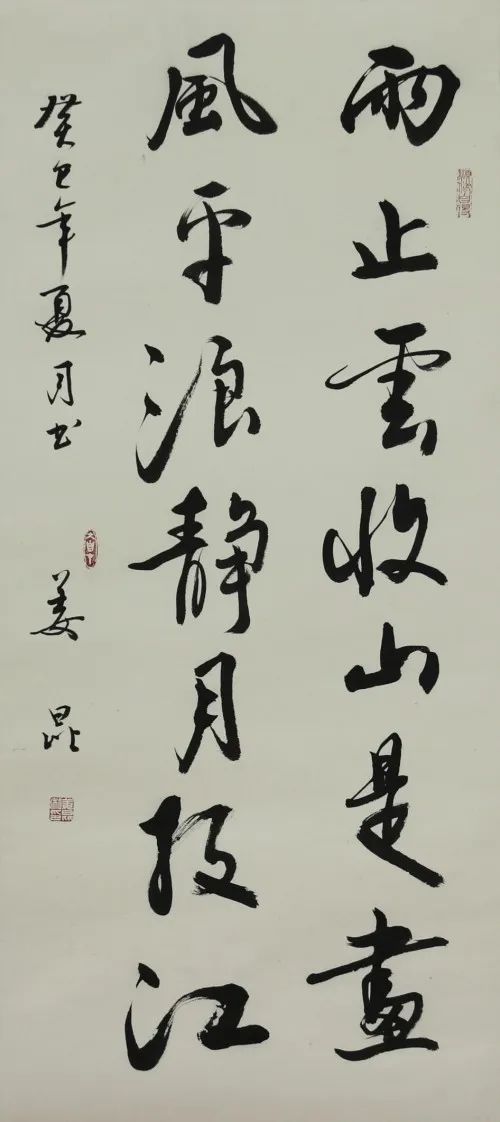 雨止雲收山是畫
風平浪静月投江
癸巳年夏月書
姜昆